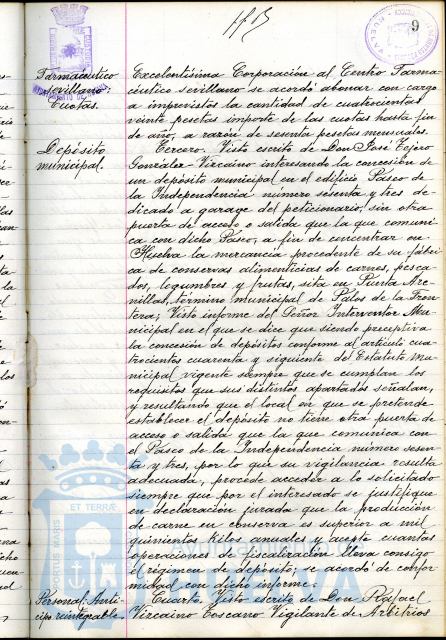 9
Farmacéutico
sevillano
Cuotas.
Excelentísima Corporación al Centro Farma-
céutico sevillano se acordó abonar con cargo
a imprevistos la cantidad de cuatrocientas
veinte pesetas importe de las cuotas hasta fin
de año, a razón de sesenta pesetas mensuales.
Depósito
municipal.
Tercero. Visto escrito de Don José Tejero
González-Vizcaino interesando la concesión de
un depósito municipal en el edificio Paseo de
la Independencia número sesenta y tres de-
dicado a garage del peticionario, sin otra
puerta de acceso o salida que la que comuni-
ca con dicho Paseo, a fin de concentrar en
Huelva la mercancía procedente de su fábri-
ca de conservas alimenticias de carnes, pesca-
dos, legumbres y frutas, sita en Punta Are-
nillas, término municipal de Palos de la Fron-
tera; Visto informe del Señor Interventor Mu-
nicipal en el que se dice que siendo preceptiva
la concesión de depósitos conforme al artículo cua-
trocientos cuarenta y siguiente del Estatuto Mu-
nicipal vigente siempre que se cumplan los
requisitos que sus distintos apartados señalan,
y resultando que el local en que se pretende
establecer el depósito no tiene otra puerta de
acceso o salida que la que comunica con
el Paseo de la Independencia número sesen-
ta y tres, por lo que su vigilancia resulta
adecuada, procede acceder a lo solicitado
siempre que por el interesado se justifique
en declaración jurada que la producción
de carne en conserva es superior a mil
quinientos kilos anuales y acepte cuantas
operaciones de fiscalización lleva consigo
el régimen de depósito; se acordó de confor-
midad con dicho informe.
Personal. Anti-
cipo reintegrable.
Cuarto. Visto escrito de Don Rafael
Vizcaino Toscano Vigilante de Arbitrios
PORTUS MARIS ET TERRAE
HUELVA